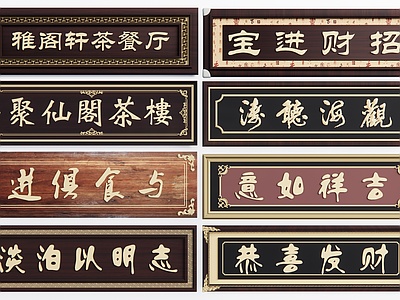 雅阁轩茶餐厅
招财进宝
聚仙閣茶樓
觀海聽涛
与食俱进
吉祥如意
淡泊以明志
恭喜发财